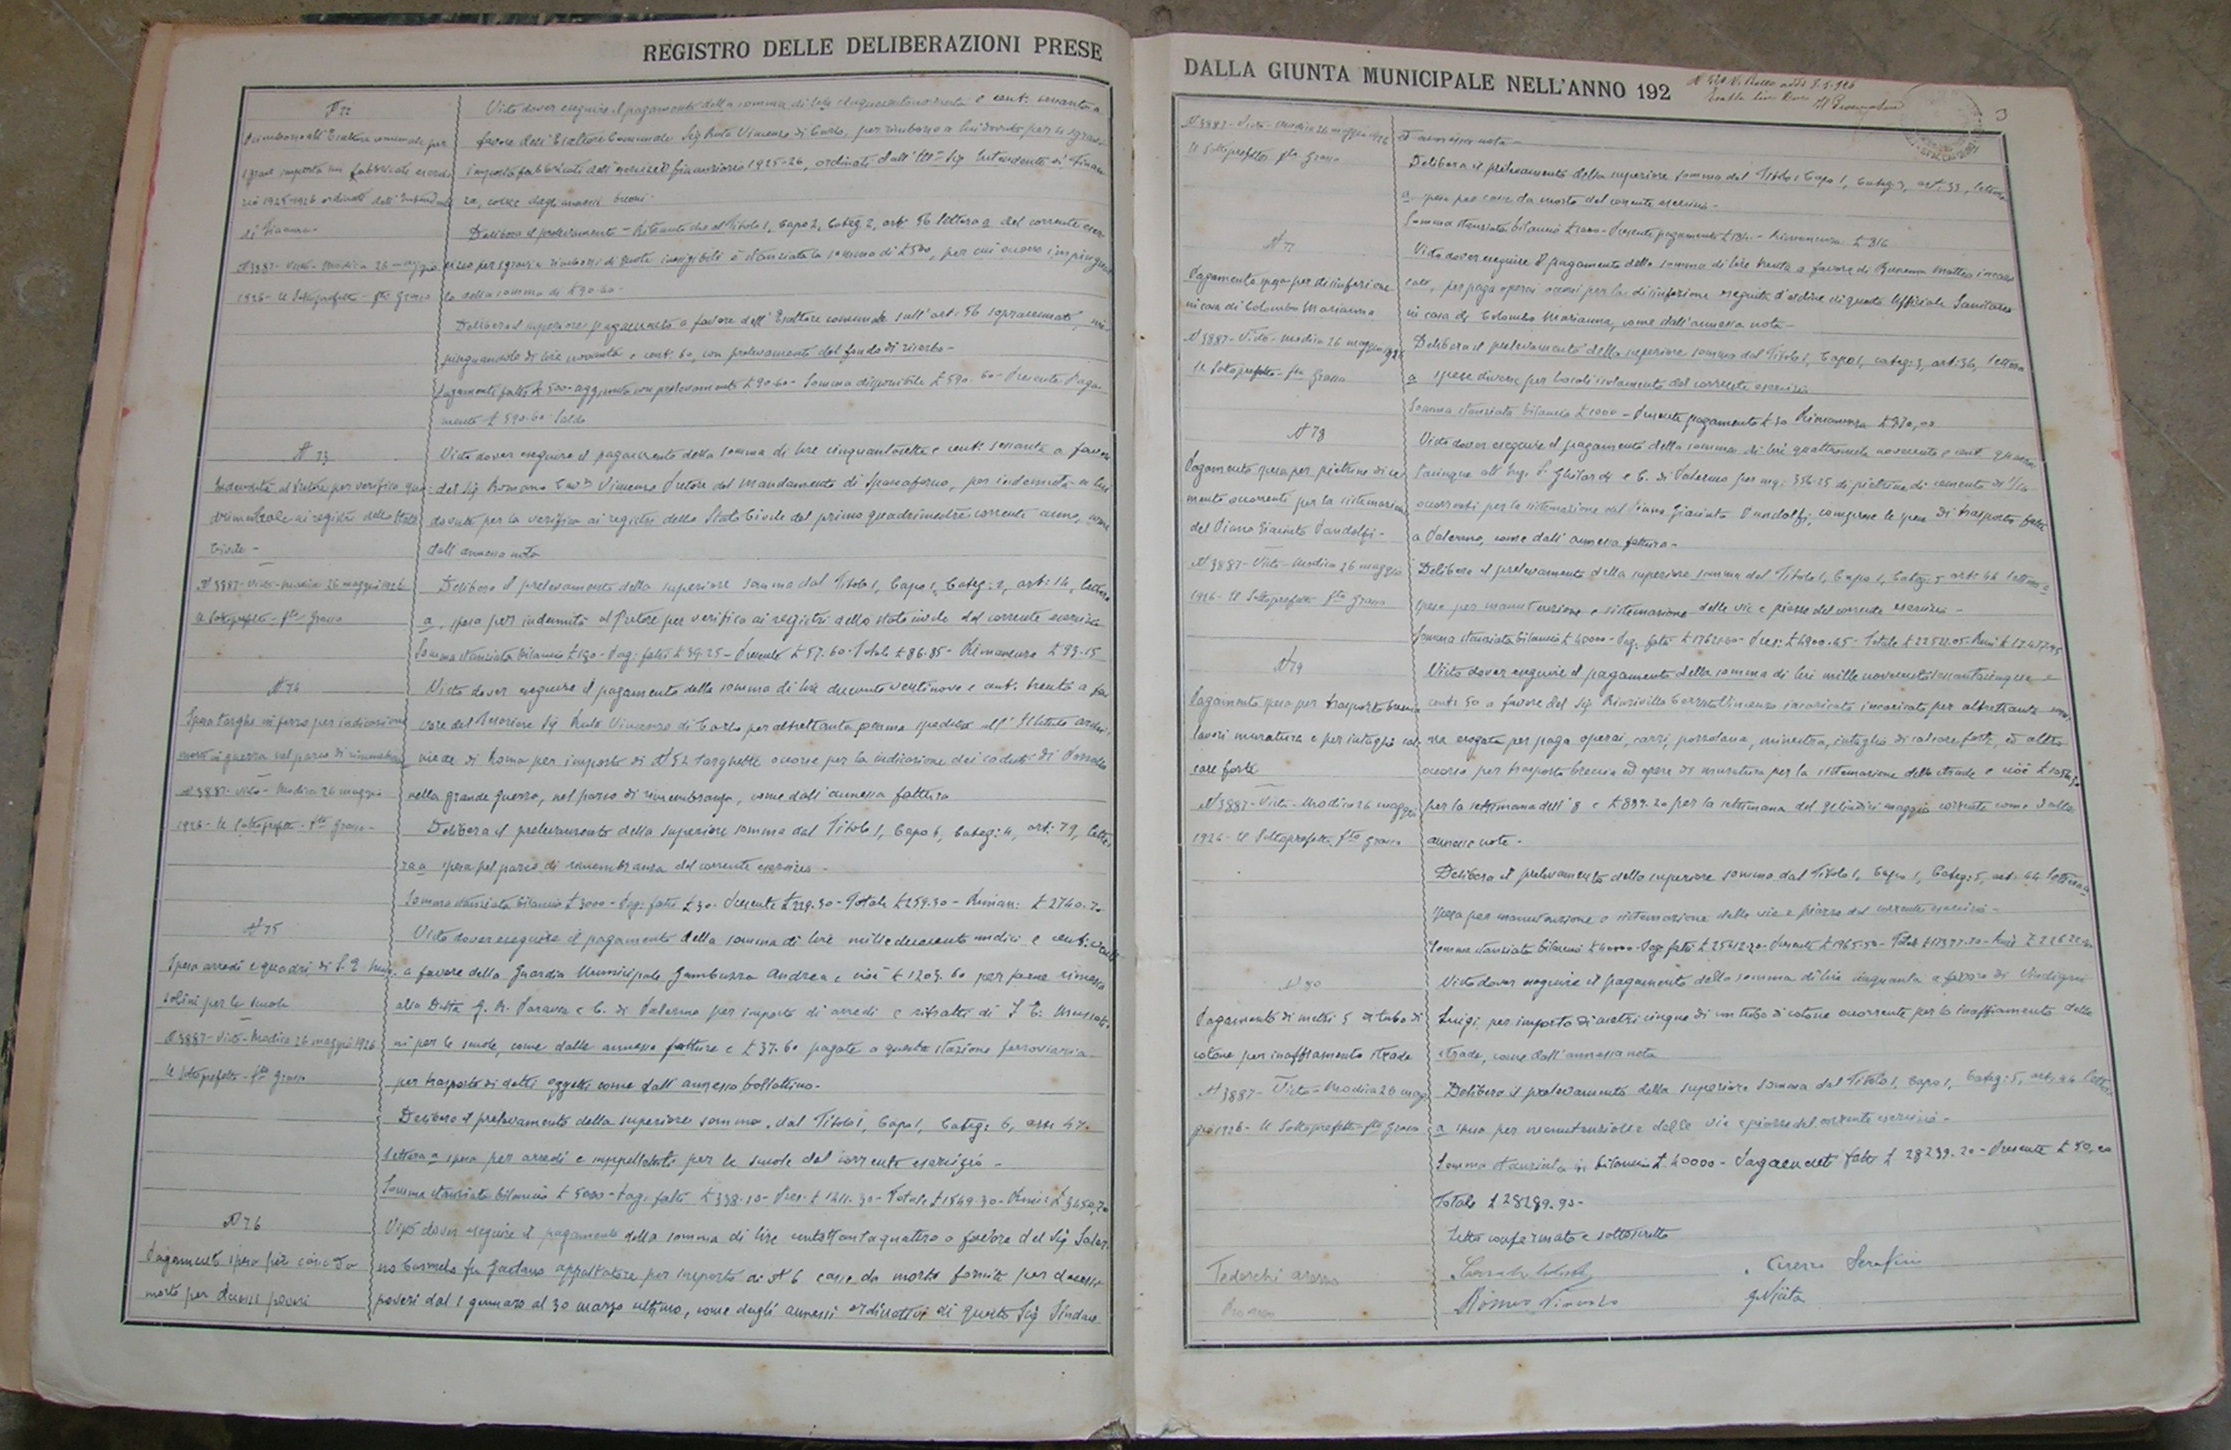 REGISTRO DELLE DELIBERAZIONI PRESE
N 72
Rimborso all'Esattore comunale per
sgravi imposta sui fabbricati eserci-
zio 1925-1926 ordinati dall'Intendente
di Finanza -
N 3887 - Visto - Modica 26 maggio
1926 - Il Sottoprefetto - fto Grasso
Visto dover eseguire il pagamento della somma di lire cinquecentonovanta e cent: sessanta a
favore dell'Esattore Comunale Sig Vincenzo di Carlo, per rimborso a lui dovuto per sgravi
imposta fabbricati dell'esercizio finanziario 1925-26, ordinati dall' Sig Intendente di Finan
za, come dagli annessi
Delibera il prelevamento - Ritenuto che al Titolo 1, Capo 2, Categ 2, art 56 lettera a del corrente eser
cizio per sgravi e rimborsi di quote inesigibili è stanziata la somma di £ 500, per cui occorre impinguar
lo della somma di £ 90.60 -
Delibera il superiore pagamento a favore dell'Esattore comunale sull'art: 56 sopracennato, im-
pinguandolo di lire novanta e cent 60, con prelevamento dal fondo di riserva -
Pagamenti fatti £ 500 - aggiunta con prelevamento £ 90.60 - Somma disponibile £ 590.60 - Presente Paga
mento £ 590.60 Saldo
N 73
Indennità al Pretore per verifica qua-
drimestrale ai registri dello Stato
Civile -
N 3887 - Visto - Modica 26 maggio 1926
Il Sottoprefetto - fto Grasso
Visto dover eseguire il pagamento della somma di lire cinquantasette e cent: sessanta a favore
del Sig Romano Cav Vincenzo Pretore del Mandamento di Spaccaforno, per indennità a lui
dovuta per la verifica ai registri dello Stato Civile del primo quadrimestre corrente anno, come
dall'annessa nota
Delibera il prelevamento della superiore somma dal Titolo 1, Capo 1, Categ: 2, art: 14, lettera
a. spesa per indennità al Pretore per verifica ai registri dello stato civile del corrente esercizio
Somma stanziata bilancio £ 180 - Pag: fatti £ 29.25 - Presente £ 57.60 - Totale £ 86.85 - Rimanenza £ 93.15
N 74
Spesa targhe in ferro per indicazione
morti in guerra nel parco di rimembranza
N 3887 - Visto - Modica 26 maggio
1926 - Il Sottoprefetto - fto Grasso -
Visto dover eseguire il pagamento della somma di lire duecentoventinove e cent: trenta a fa
vore del Tesoriere Sig Vincenzo di Carlo per altrettanta somma spedita all'Istituto
di Roma per importo di N 52 targhette occorse per la indicazione dei caduti di
nella grande guerra, nel parco di rimembranza, come dall'annessa fattura
Delibera il prelevamento della superiore somma dal Titolo 1, Capo 6, Categ: 4, art: 79, lette
ra a spesa pel parco di rimembranza del corrente esercizio -
Somma stanziata bilancio £ 3000 - Pag: fatti £ 30 - Presente £ 229.30 - Totale £ 259.30 - Riman: £ 2740.70
N 75
Spesa arredi e quadri di S. E Mus
solini per le scuole
N 3887 - Visto - Modica 26 maggio 1926
Il Sottoprefetto - fto Grasso
Visto dover eseguire il pagamento della somma di lire milleduecento undici e cent:
a favore della Guardia Municipale Gambuzza Andrea e cioè £ 1203.60 per somma rimessa
alla Ditta G. B. Paravia e C. di Palermo per importo di arredi e ritratti di S E: Mussoli
ni per le scuole, come dalle annesse fatture e £ 37.60 pagate a questa stazione ferroviaria
per trasporto di detti oggetti come dall'annesso bollettino -
Delibera il prelevamento della superiore somma, dal Titolo 1, Capo 1, Categ: 6, art: 47.
lettera a spesa per arredi e suppellettili per le scuole del corrente esercizio -
Somma stanziata bilancio £ 5000 - Pag: fatti £ 338.10 - Pres: £ 1211.30 - Totale £ 1549.30 - Rim: £ 3450,70
N 76
Pagamento spesa per casse da
morto per decessi poveri
Visto dover eseguire il pagamento della somma di lire centottantaquattro a favore del Sig Salor
no Carmelo fu Gaetano appaltatore per importo di N 6 casse da morto fornite per decessi
poveri dal 1 gennaro al 30 marzo ultimo, come dagli annessi ordinativi di questo Sig Sindaco
DALLA GIUNTA MUNICIPALE NELL'ANNO 192
3
N 3887 - Visto - Modica 26 maggio 1926
Il Sottoprefetto fto Grasso
annessa nota -
Delibera il prelevamento della superiore somma dal Titolo 1 Capo 1, Categ: 3, art: 33, lettera
a. spesa per casse da morto del corrente esercizio -
Somma stanziata bilancio £ 1000 - Presente pagamento £ 184 - Rimanenza £ 816
N 77
Pagamento spesa per disinfezione
in casa di Colombo Marianna
N 3887 - Visto - Modica 26 maggio 1926
Il Sottoprefetto - fto Grasso
Visto dover eseguire il pagamento della somma di lire trenta a favore di Matteo incari
cato, per paga operai occorsi per la disinfezione eseguita d'ordine di questo Ufficiale Sanitario
in casa di Colombo Marianna, come dall'annessa nota -
Delibera il prelevamento della superiore somma dal Titolo 1, Capo 1, categ: 3, art: 36, lettera
a spese diverse per locali isolamento del corrente esercizio
Somma stanziata bilancio £ 1000 - Presente pagamento £ 30 Rimanenza £ 970,00
N 78
Pagamento spesa per pietrine di ce
mento occorrenti per la sistemazione
del Piano Giacinto Pandolfi -
N 3887 - Visto - Modica 26 maggio
1926 - Il Sottoprefetto fto Grasso
Visto dover eseguire il pagamento della somma di lire quattromila novecento e cent quaran
tacinque all'Ing. S. Ghilardi e C. di Palermo per mq: 356.25 di pietrine di cemento
occorrenti per la sistemazione del Piano Giacinto Pandolfi, comprese le spese di trasporto fatte
a Palermo, come dall'annessa fattura -
Delibera il prelevamento della superiore somma dal Titolo 1, Capo 1, Categ: 5 art: 44 lettera a
spese per manutenzione e sistemazione delle vie e piazze del corrente esercizio -
Somma stanziata bilancio £ 40000 - Pag: fatti £ 17621.60 - Pres: £ 4900.45 - Totale £ 22522.05 - Rim £ 17477.95
N 79
Pagamento spesa per trasporto breccia
lavori muratura e per intaglio cal
care forte
N 3887 - Visto - Modica 26 maggio
1926 - Il Sottoprefetto fto Grasso
Visto dover eseguire il pagamento della somma di lire mille novecentosessantacinque e
cent: 50 a favore del Sig Vincenzo incaricato incaricato per altrettanta som
ma erogata per paga operai, carri, pozzolana, minestra, intaglio di calcare forte, ed altro
occorso per trasporto breccia ed opere di muratura per la sistemazione delle strade e cioè
per la settimana dell'8 e £ 899.20 per la settimana del quindici maggio corrente come dalle
annesse note -
Delibera il prelevamento della superiore somma dal Titolo 1, Capo 1, Categ: 5, art: 44 lettera a
spesa per manutenzione e sistemazione delle vie e piazze del corrente esercizio -
N 80
Pagamento di metri 5 di tubo di
cotone per inaffiamento strade
N 3887 - Visto - Modica 26 mag
gio 1926 - Il Sottoprefetto fto Grasso
Visto dover eseguire il pagamento della somma di lire cinquanta a favore di Vindigni
Luigi per importo di metri cinque di un tubo di cotone occorrente per lo inaffiamento delle
strade, come dall'annessa nota
Delibera il prelevamento della superiore somma dal Titolo 1, Capo 1, Categ: 5, art: 44 lettera
a spesa per manutenzione delle vie e piazze del corrente esercizio -
Somma stanziata in bilancio £ 40000 - Pagamenti fatti £ 28239.20 - Presente £ 50,00
Totale £ 28289.90 -
Letto confermato e sottoscritto
Tedeschi